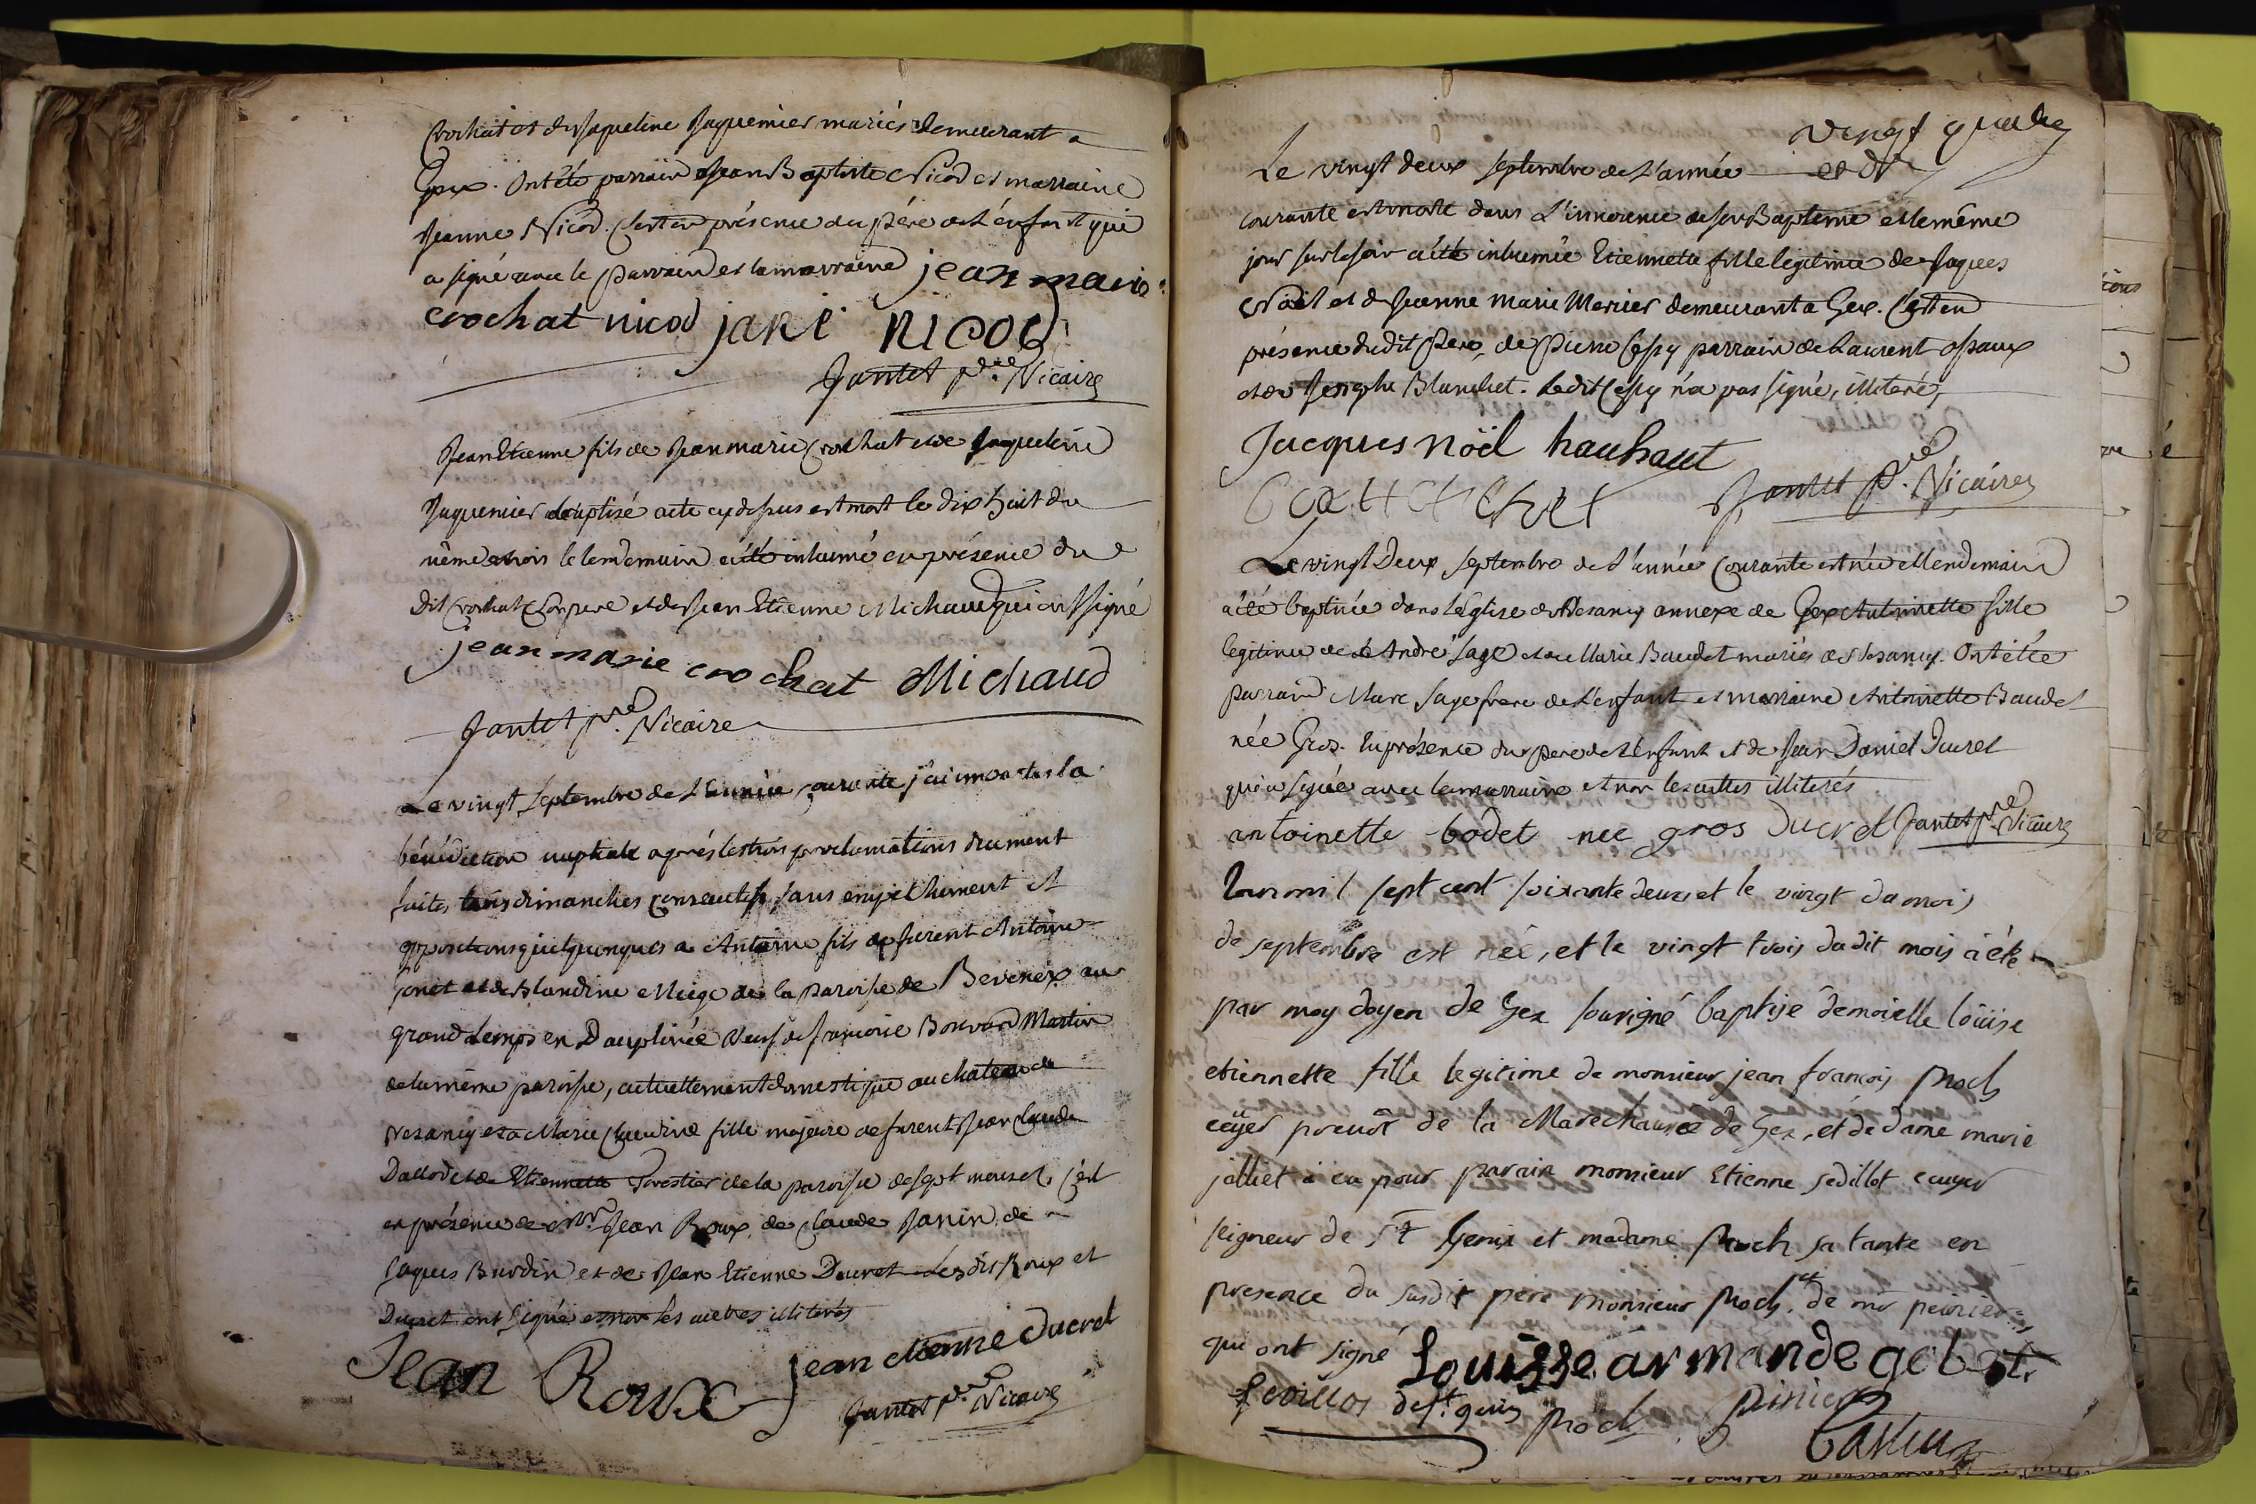 Crochat et de Jaqueline Jaquemier mariés demeurant a
Gex. Ont été parrain Jean Baptiste Nicod et marraine
Jeanne Nicod. C'est en présence du père de l'enfant qui
a signé avec le parrain et la marraine jean marie
crochat nicod jane nicod
Jantet ptre Vicaire
Jean Etienne fils de Jean marie Crochat et de Jaqueline
Jaquemier baptisé acte cy dessus est mort le dix huit du
même mois le lendemain a été inhumé en présence du
dit Crochat son pere et de Jean Etienne Michaud qui ont signé
jean marie crochat Michaud
Jantet ptre Vicaire
Le vingt septembre de l'année courante j'ai imparti la
bénédiction nuptiale après les trois proclamations duement
faites trois dimanches consecutifs, sans empêchement et
oppositions quelquonques a Antoine fils de furent Antoine
et de Blandine Meige de la paroisse de Bevenex au
grand Lemps en Dauphinée veuf de francoise Bouvard Martin
de la même paroisse, actuellement domestique au chateau de
Vesancy et a Marie Claudine fille majeure de furent Jean Claude
Dallod et de Etiennette Forestier de la paroisse de sept moncel, c'est
en présence de Mr Jean Roux, de Claude Janin, de
Jaques Burdin et de Jean Etienne Ducret. Lesdits Roux et
Ducret ont signé et non les autres illiterés
Jean Roux jean etienne ducret
Jantet ptre Vicaire
vingt quatre
Le vingt deux septembre de l'année
courante est morte dans l'innocence de son Baptême et le même
jour sur le soir a été inhumée Etiennette fille legitime de Jaques
Noël et de Jeanne Marie Mercier demeurant a Gex. C'est en
présence dudit Pere, de Pierre Cessy parrain de Laurent
et de Joseph Blanchet. Ledit Cessy n'a pas signé, illiteré,
Jacques nöel
Jantet ptre Vicaire
Le vingt deux septembre de l'année courante est née et lendemain
a été baptisée dans l'Eglise de Vesancy annexe de Gex Antoinette fille
legitime de André Sage et de Marie Baudet mariés de Vesancy. Ont été
parrain Marc Sage frere de l'enfant et marraine Antoinette Baudet
née Gros. En présence du pere de l'Enfant et de Jean Daniel Ducret
qui a signé avec la marraine et non les autres illiterés
antoinette bodet nee gros Ducret Jantet ptre Vicaire
L'an mil sept cent soixante deux et le vingt du mois
de septembre est née, et le vingt trois dudit mois à été
par moy doyen de Gex sousigné baptisé demoiselle loüise
etiennette fille legitime de monsieur jean françois
de la Marechaussée de Gex, et de dame marie
à eu pour parain monsieur Etienne sedillot ecuyer
seigneur de St Genix et madame sa tante en
presence du susdit pere monsieur de mr perrier
qui ont signé Louisse armande